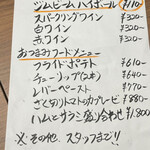 ジムビームハイボール ¥110
スパークリングワイン ¥320-
白ワイン ¥320-
赤ワイン ¥320-
おつまみフードメニュー
フライドポテト ¥610-
チューリップ(2本) ¥640-
レバーペースト ¥770-
さくさくトマトのカプレーゼ ¥880-
ハムとサラミ盛り合わせ ¥1.800
※その他、スタッフまで!!